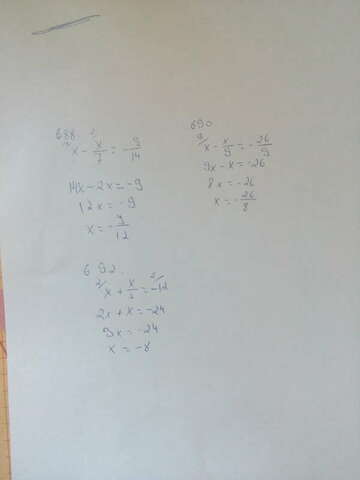 688
14/ x - x/7 = -9/14
14x - 2x = -9
12x = -9
x = -9/12
690
9/ x - x/9 = -26/9
9x - x = -26
8x = -26
x = -26/8
692
2/ x + x/2 = -12
2x + x = -24
3x = -24
x = -8